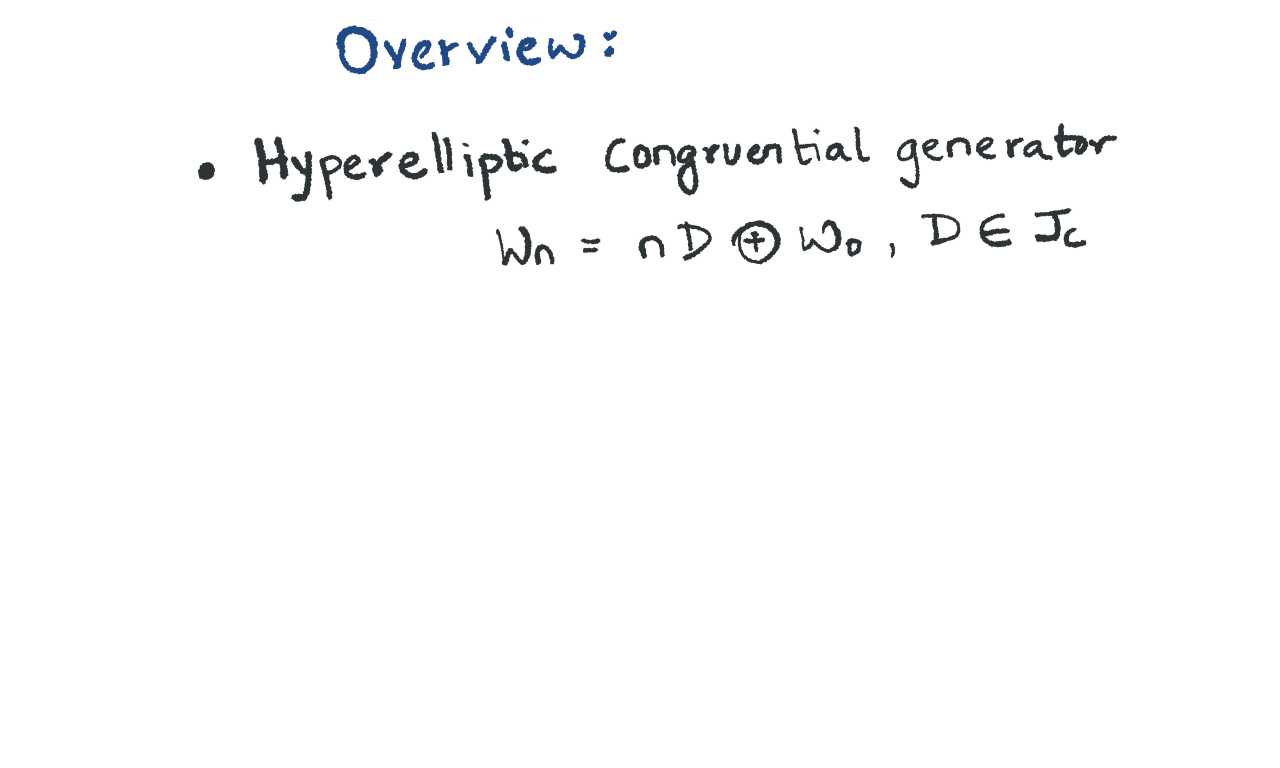 Overview:
• Hyperelliptic Congruential generator
Wn = nD ⊕ W₀, D ∈ J_C